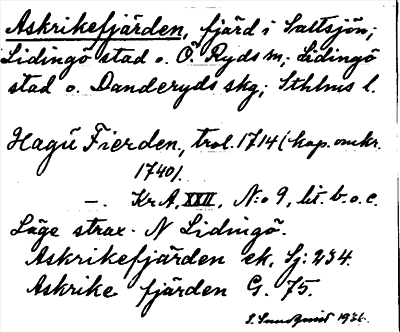 Askrikefjärden, fjärd i Saltsjön;
Lidingö stad o. Ö. Ryds sn; Lidingö
stad o. Danderyds skg; Sthlms l.
Hagü Fierden, trol. 1714 (kop. omkr.
1740).
—. Kr A, XXII, N:o 9, lit. b. o. c.
Läge strax N Lidingö.
Askrikefjärden ek. Sj: 234.
Askrike fjärden G. 75.
S. Sundquist 1936.